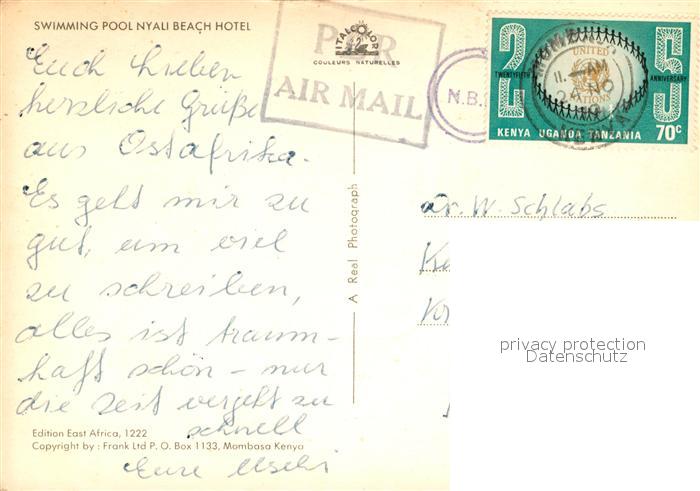 SWIMMING POOL NYALI BEACH HOTEL
Euch Lieben
herzliche Grüße
aus Ostafrika.
Es geht mir zu
gut, um viel
zu schreiben,
alles ist traum-
haft schön - nur
die Zeit vergeht zu
schnell
Edition East Africa, 1222
Copyright by : Frank Ltd P. O. Box 1133, Mombasa Kenya
Eure Uschi
ITALCOLOR
COULEURS NATURELLES
PAR
AIR MAIL
N.B.
A Real Photograph
25
TWENTYFIFTH
UNITED
NATIONS
ANNIVERSARY
KENYA UGANDA TANZANIA 70c
11 AM
Dr. W. Schlabs
privacy protection
Datenschutz